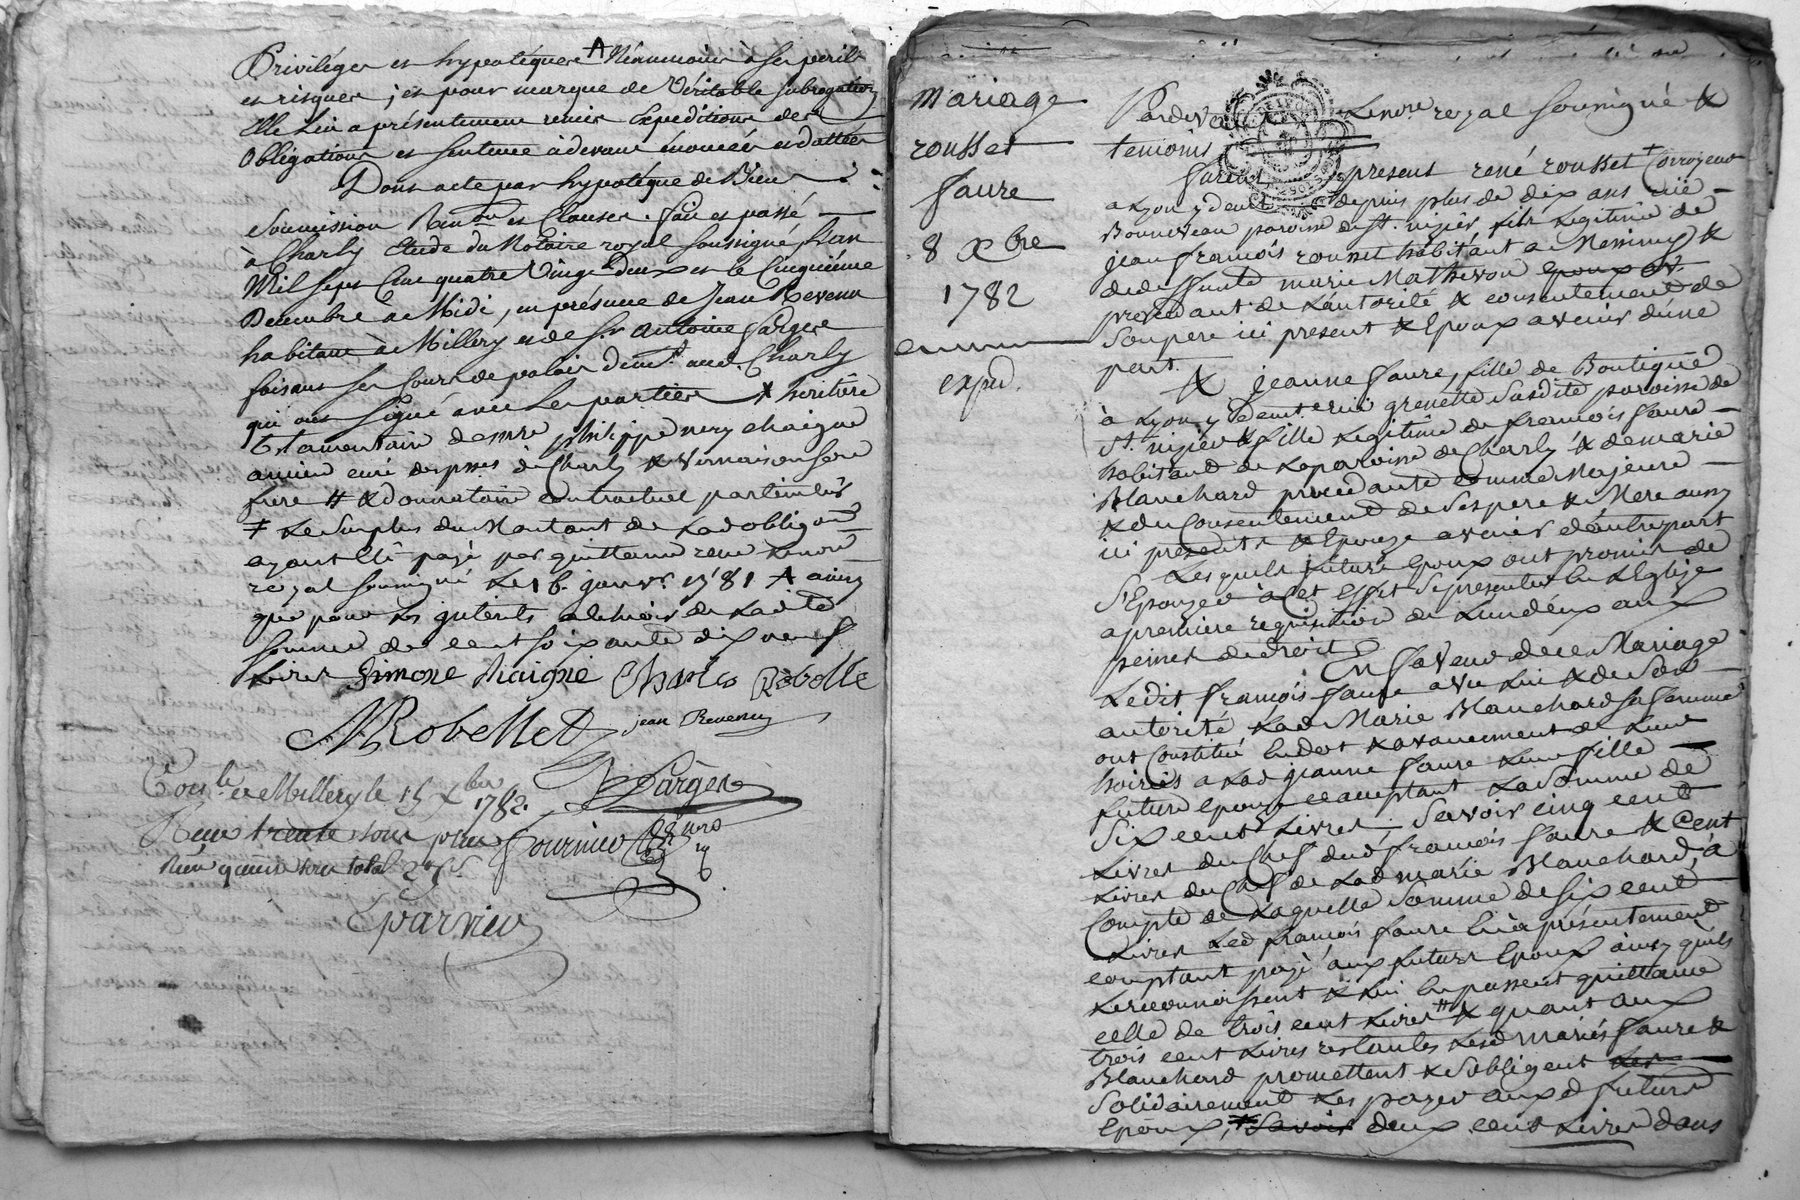 Privilèges et hypotéques A Néanmoins à ses perils
et risques ; et pour marque de Véritable subrogation
Elle lui a présentement remis Expeditions des
Obligations et sentence a devant énoncées et dattées
Dont acte par hypotéque de Biens
Soumission Ren.on et Clauses. fait et passé
à Charly Etude du Notaire royal soussigné, L'an
Mil sept Cent quatre Vingt deux et le Cinquiéme
Decembre à Midi, en présence de Jean Revenu
habitant à Millery et de Sr. Antoine Sargere
faisant ses Cours de palais dem.t aud. Charly
qui ont signé avec les parties x heritiere
testamentaire de mre philippe nery chaigne
ancien curé des psses de Charly & vernaison son
frere # & donnataire contractuel
≠ Le Surplus du Montant de Lad obligon
ayant été payé par quittance reçue Le nore
royal soussigné Le 16. janvr. 1781 A ainsy
que pour les intérêts de Ladite
somme de cent soixante dix neuf
Livres Simone Chaigne Charles Robelle
Robellet jean Revenu
Sargere
Con.lé à Millery le 15 Xbre 1782.
Reçu trente sous pour
quinze sous total
fournier
Mariage
rousset
faure
8 Xbre
1782
expd.
Pardevant Le nore. royal soussigné &
temoins
furent present rené rousset + Corroyeur
a Lyon y demt depuis plus de dix ans ruë
Bonneveau paroisse de St. nizier fils Legitime de
jean françois rousset habitant a Messimy &
de deffunte marie Mathevon epoux av.
procedant de L'autorité & consentement de
Son pere ici present & Epoux avenir d'une
part.
& jeanne faure, fille de Boutique
à Lyon y demte rue grenette Susdite paroisse de
St. nizier & fille Legitime de françois faure
habitant de La paroisse de Charly & de marie
Blanchard procedante comme Majeure
& du Consentement de Ses pere & Mere aussy
ici presents & Epouze avenir d'autre part
Lesquels future Epoux ont promis de
S'Epouzer a cet Effet Se presenter En L'Eglize
a premiere requisition de L'un d'eux aux
peines de droit En faveur de ce Mariage
Ledit françois faure avec Lui & de Son
autorité Lad Marie Blanchard Sa femme
ont Constitué En dot & avancement de Leur
hoiries a Lad jeanne faure Leur fille
future epouze acceptant La Somme de
Six cent Livres ; Savoir cinq cent
Livres du Chef dud françois faure & Cent
Livres du Chef de Lad marie Blanchard, à
Compte de Laquelle Somme de Six cent
Livres Led françois faure En a présentement
comptant payé aux futurs Epoux ainsy qu'ils
Le reconnoissent & lui En passent quittance
celle de trois cent Livres # & quant aux
trois cent Livres restantes Lesd mariés faure &
Blanchard promettent & S'obligent Les
Solidairement Les payer auxd futurs
Epoux, ≠ Savoir deux cent Livres dans